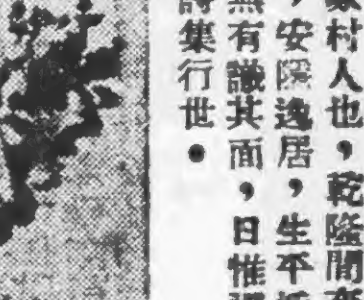 村人也，乾隆間
，安隱逸居，生平
無有識其面，日惟
詩集行世．